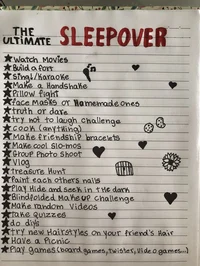 THE
ULTIMATE SLEEPOVER
★Watch Movies
★Build a fort
★Sing!/Karaoke
★Make a Handshake
★Pillow fight
★Face Masks or Homemade ones
★truth or dare
★try not to laugh challenge
★cook (anything)
★Make friendship bracelets
★Make cool slo-mos
★Group Photo shoot
★Vlog
★Treasure Hunt
★Paint each others nails
★Play Hide and seek in the dark
★Blindfolded Makeup challenge
★Make random Videos
★Take quizzes
★do diys
★try new Hairstyles on your friend's Hair
★Have a Picnic
★Play games (board games, twister, video games...)